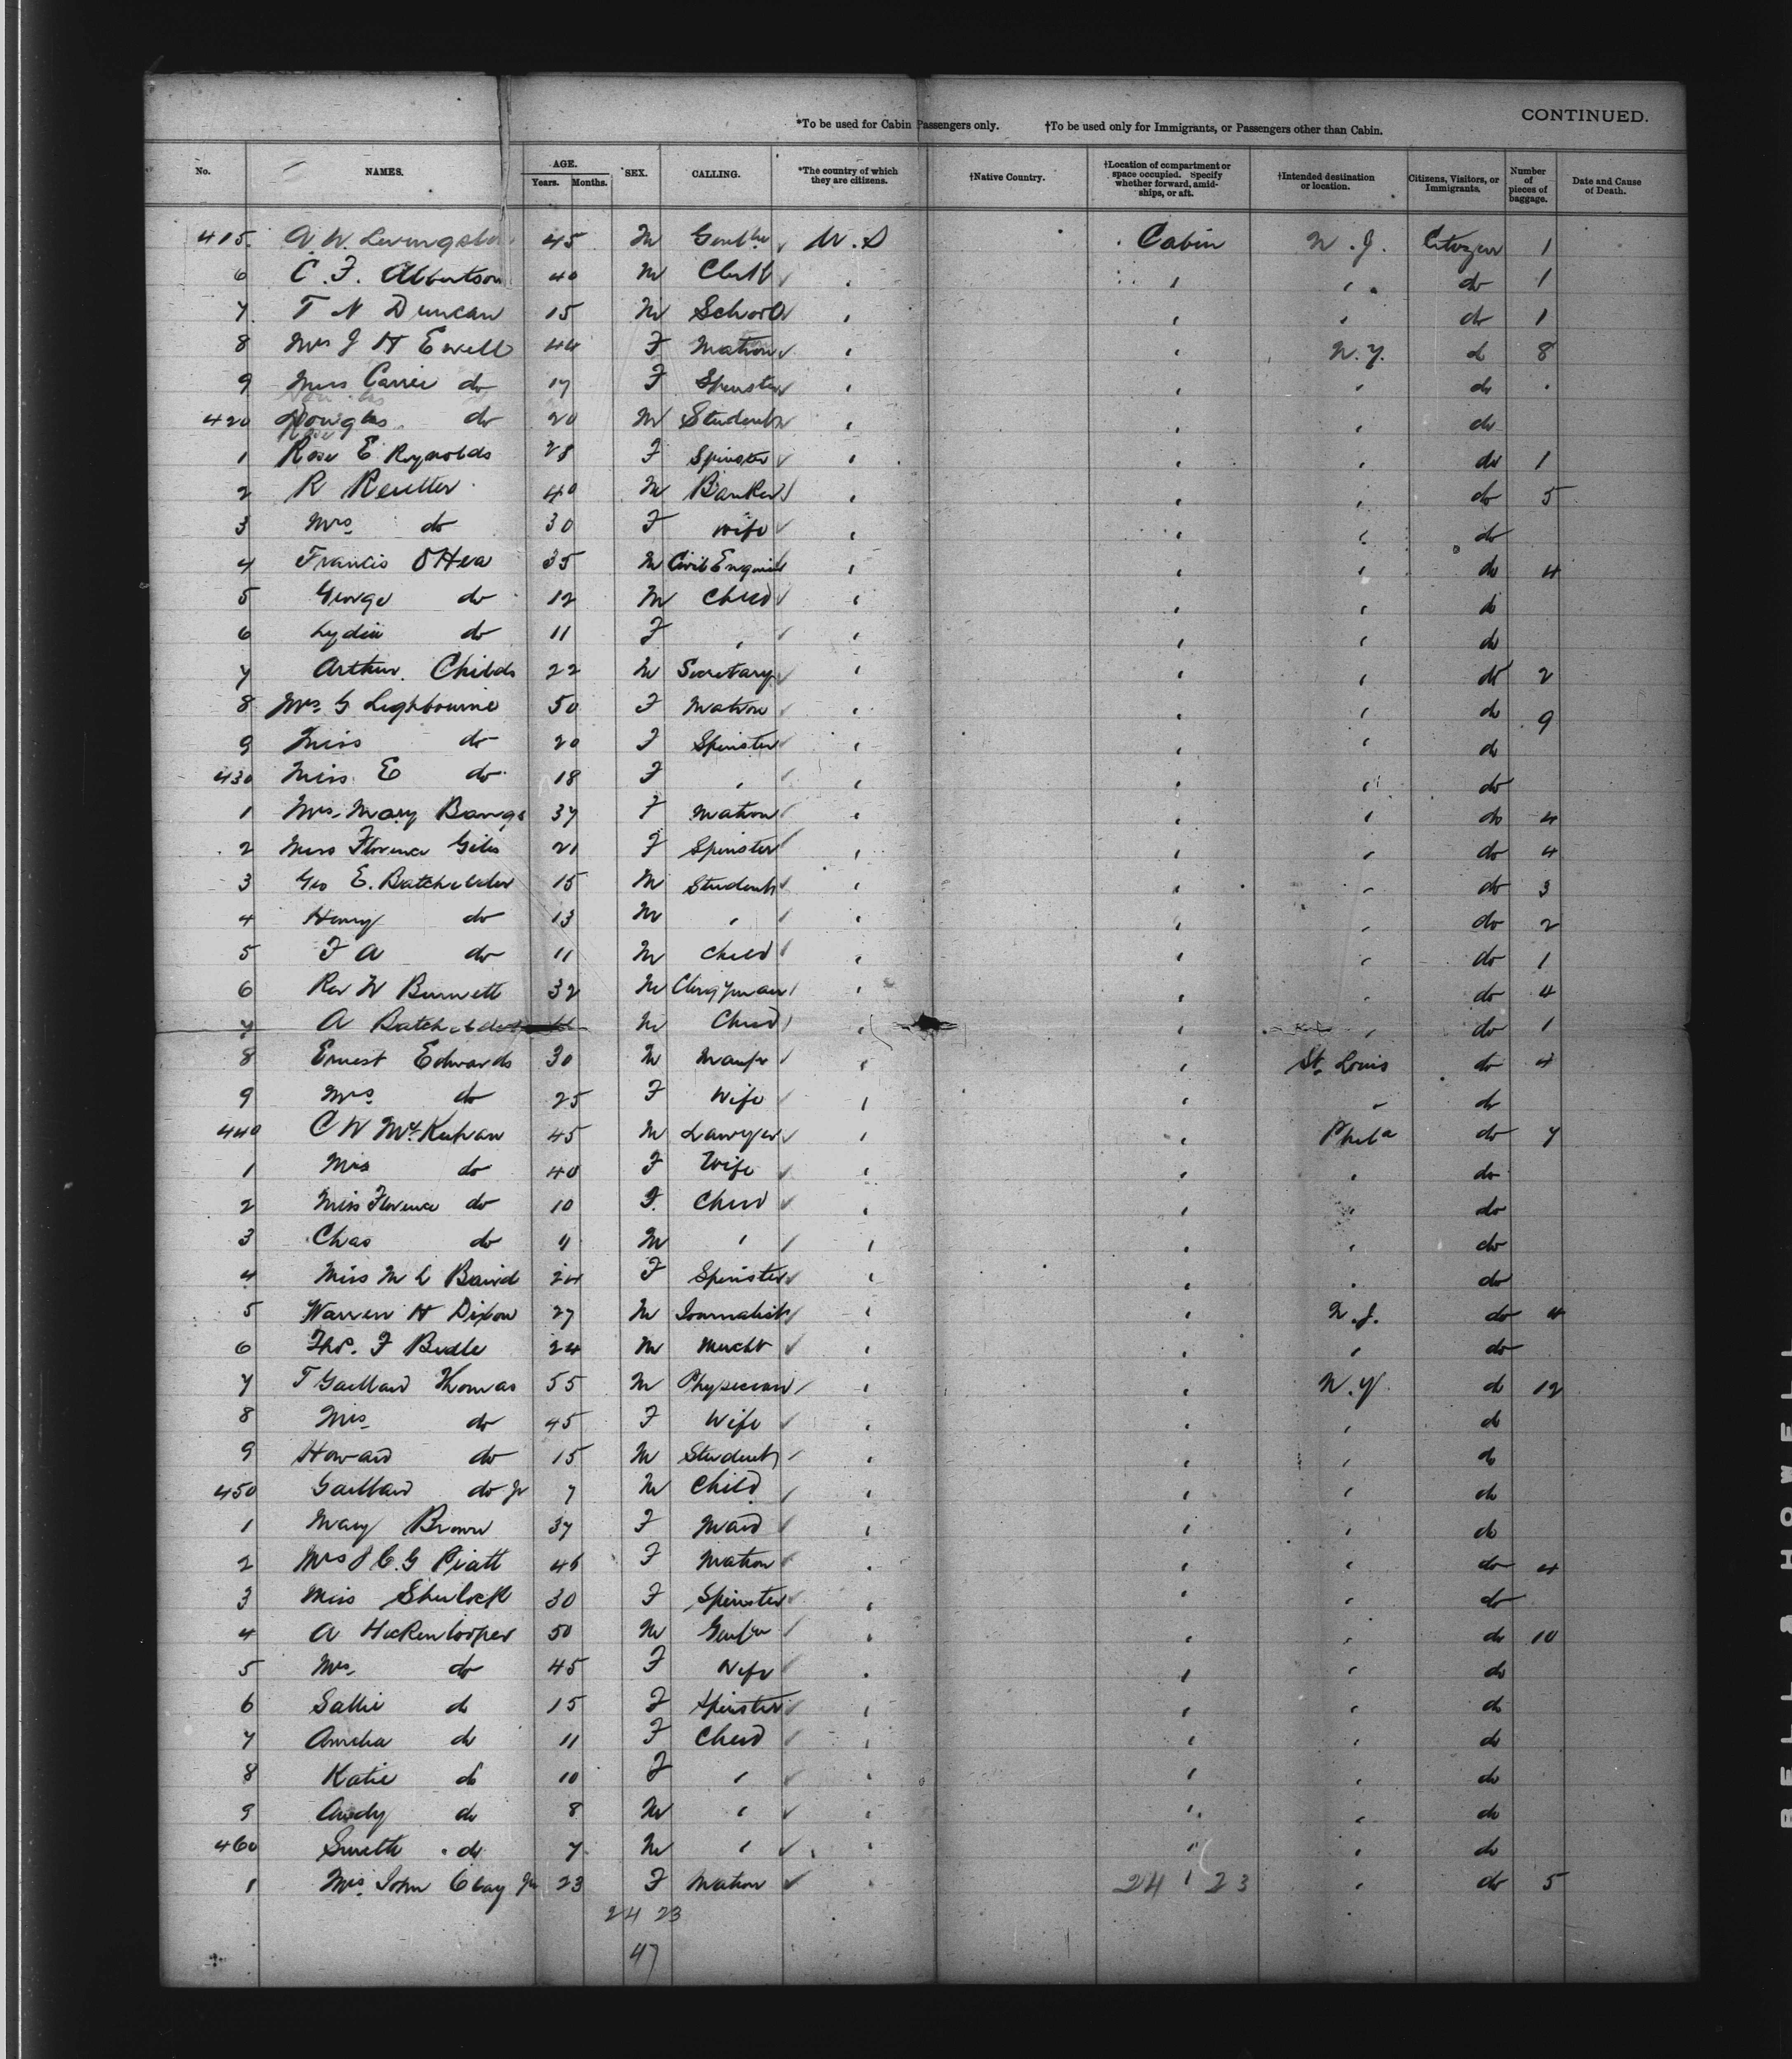 CONTINUED.
*To be used for Cabin Passengers only. †To be used only for Immigrants, or Passengers other than Cabin.
No. NAMES. AGE. Years. Months. SEX. CALLING. *The country of which they are citizens. †Native Country. †Location of compartment or space occupied. Specify whether forward, amidships, or aft. †Intended destination or location. Citizens, Visitors, or Immigrants. Number of pieces of baggage. Date and Cause of Death.
415. W. Livingston 45 M U.S Cabin N.J. Citizen 1
6 C. F. Albertson 40 M Clerk ' ' ' do 1
7 T N Duncan 15 M School ' ' ' do 1
8 Mrs J H Ewell 44 F Matron ' ' N.Y. d 8
9 Miss Carrie do 17 F Spinster ' ' ' do
420 Douglas do 20 M Student ' ' ' do
1 Rose E Reynolds 28 F Spinster ' ' ' do 1
2 R Reutter 40 M Banker ' ' ' do 5
3 Mrs do 30 F wife ' ' ' do
4 Francis O'Hea 35 M Civil Engineer ' ' ' do 4
5 George do 12 M Child ' ' ' do
6 Lydia do 11 F ' ' ' ' do
7 Arthur Childs 22 M Secretary ' ' ' do 2
8 Mrs G Lighbourne 50 F Matron ' ' ' do 9
9 Miss do 20 F Spinster ' ' ' do
430 Miss E do 18 F ' ' ' ' do
1 Mrs Mary Bangs 37 F Matron ' ' ' do 4
2 Miss Florence Giles 21 F Spinster ' ' ' do 4
3 Geo E. Batchelder 15 M Student ' ' ' do 3
4 Henry do 13 M ' ' ' ' do 2
5 F A do 11 M Child ' ' ' do 1
6 Rev W Burnett 32 M Clergyman ' ' ' do 4
7 A Batchelder M Child ' ' ' do 1
8 Ernest Edwards 30 M Manfr ' ' St. Louis do 4
9 Mrs do 25 F Wife ' ' ' do
440 C W McKeehan 45 M Lawyer ' ' Phila do 7
1 Mrs do 40 F Wife ' ' ' do
2 Miss Florence do 10 F. Child ' ' ' do
3 Chas do M ' ' ' ' do
4 Miss M L Baird 24 F Spinster ' ' ' do
5 Warren H Dixon 27 M Journalist ' ' N.J. do 4
6 Thos. F Bedle 24 M Mercht ' ' ' do
7 T Gaillard Thomas 55 M Physician ' ' N.Y. d 12
8 Mrs do 45 F Wife ' ' ' do
9 Howard do 15 M Student ' ' ' do
450 Gaillard do Jr 7 M Child ' ' ' do
1 Mary Brown 37 F Maid ' ' ' do
2 Mrs J C. G Piatt 46 F Matron ' ' ' do 4
3 Miss Sherlock 30 F Spinster ' ' ' do
4 A Hickenlooper 50 M ' ' ' do 10
5 Mrs do 45 F Wife ' ' ' do
6 Sallie do 15 F Spinster ' ' ' do
7 Amelia do 11 F Child ' ' ' do
8 Katie do 10 F ' ' ' ' do
9 Andy do 8 M ' ' ' ' do
460 Smith do 7 M ' ' ' ' do
1 Mrs John Clay Jr 23 F Matron ' 24 ' 23 ' do 5
24 23
47
BELL & HOWELL